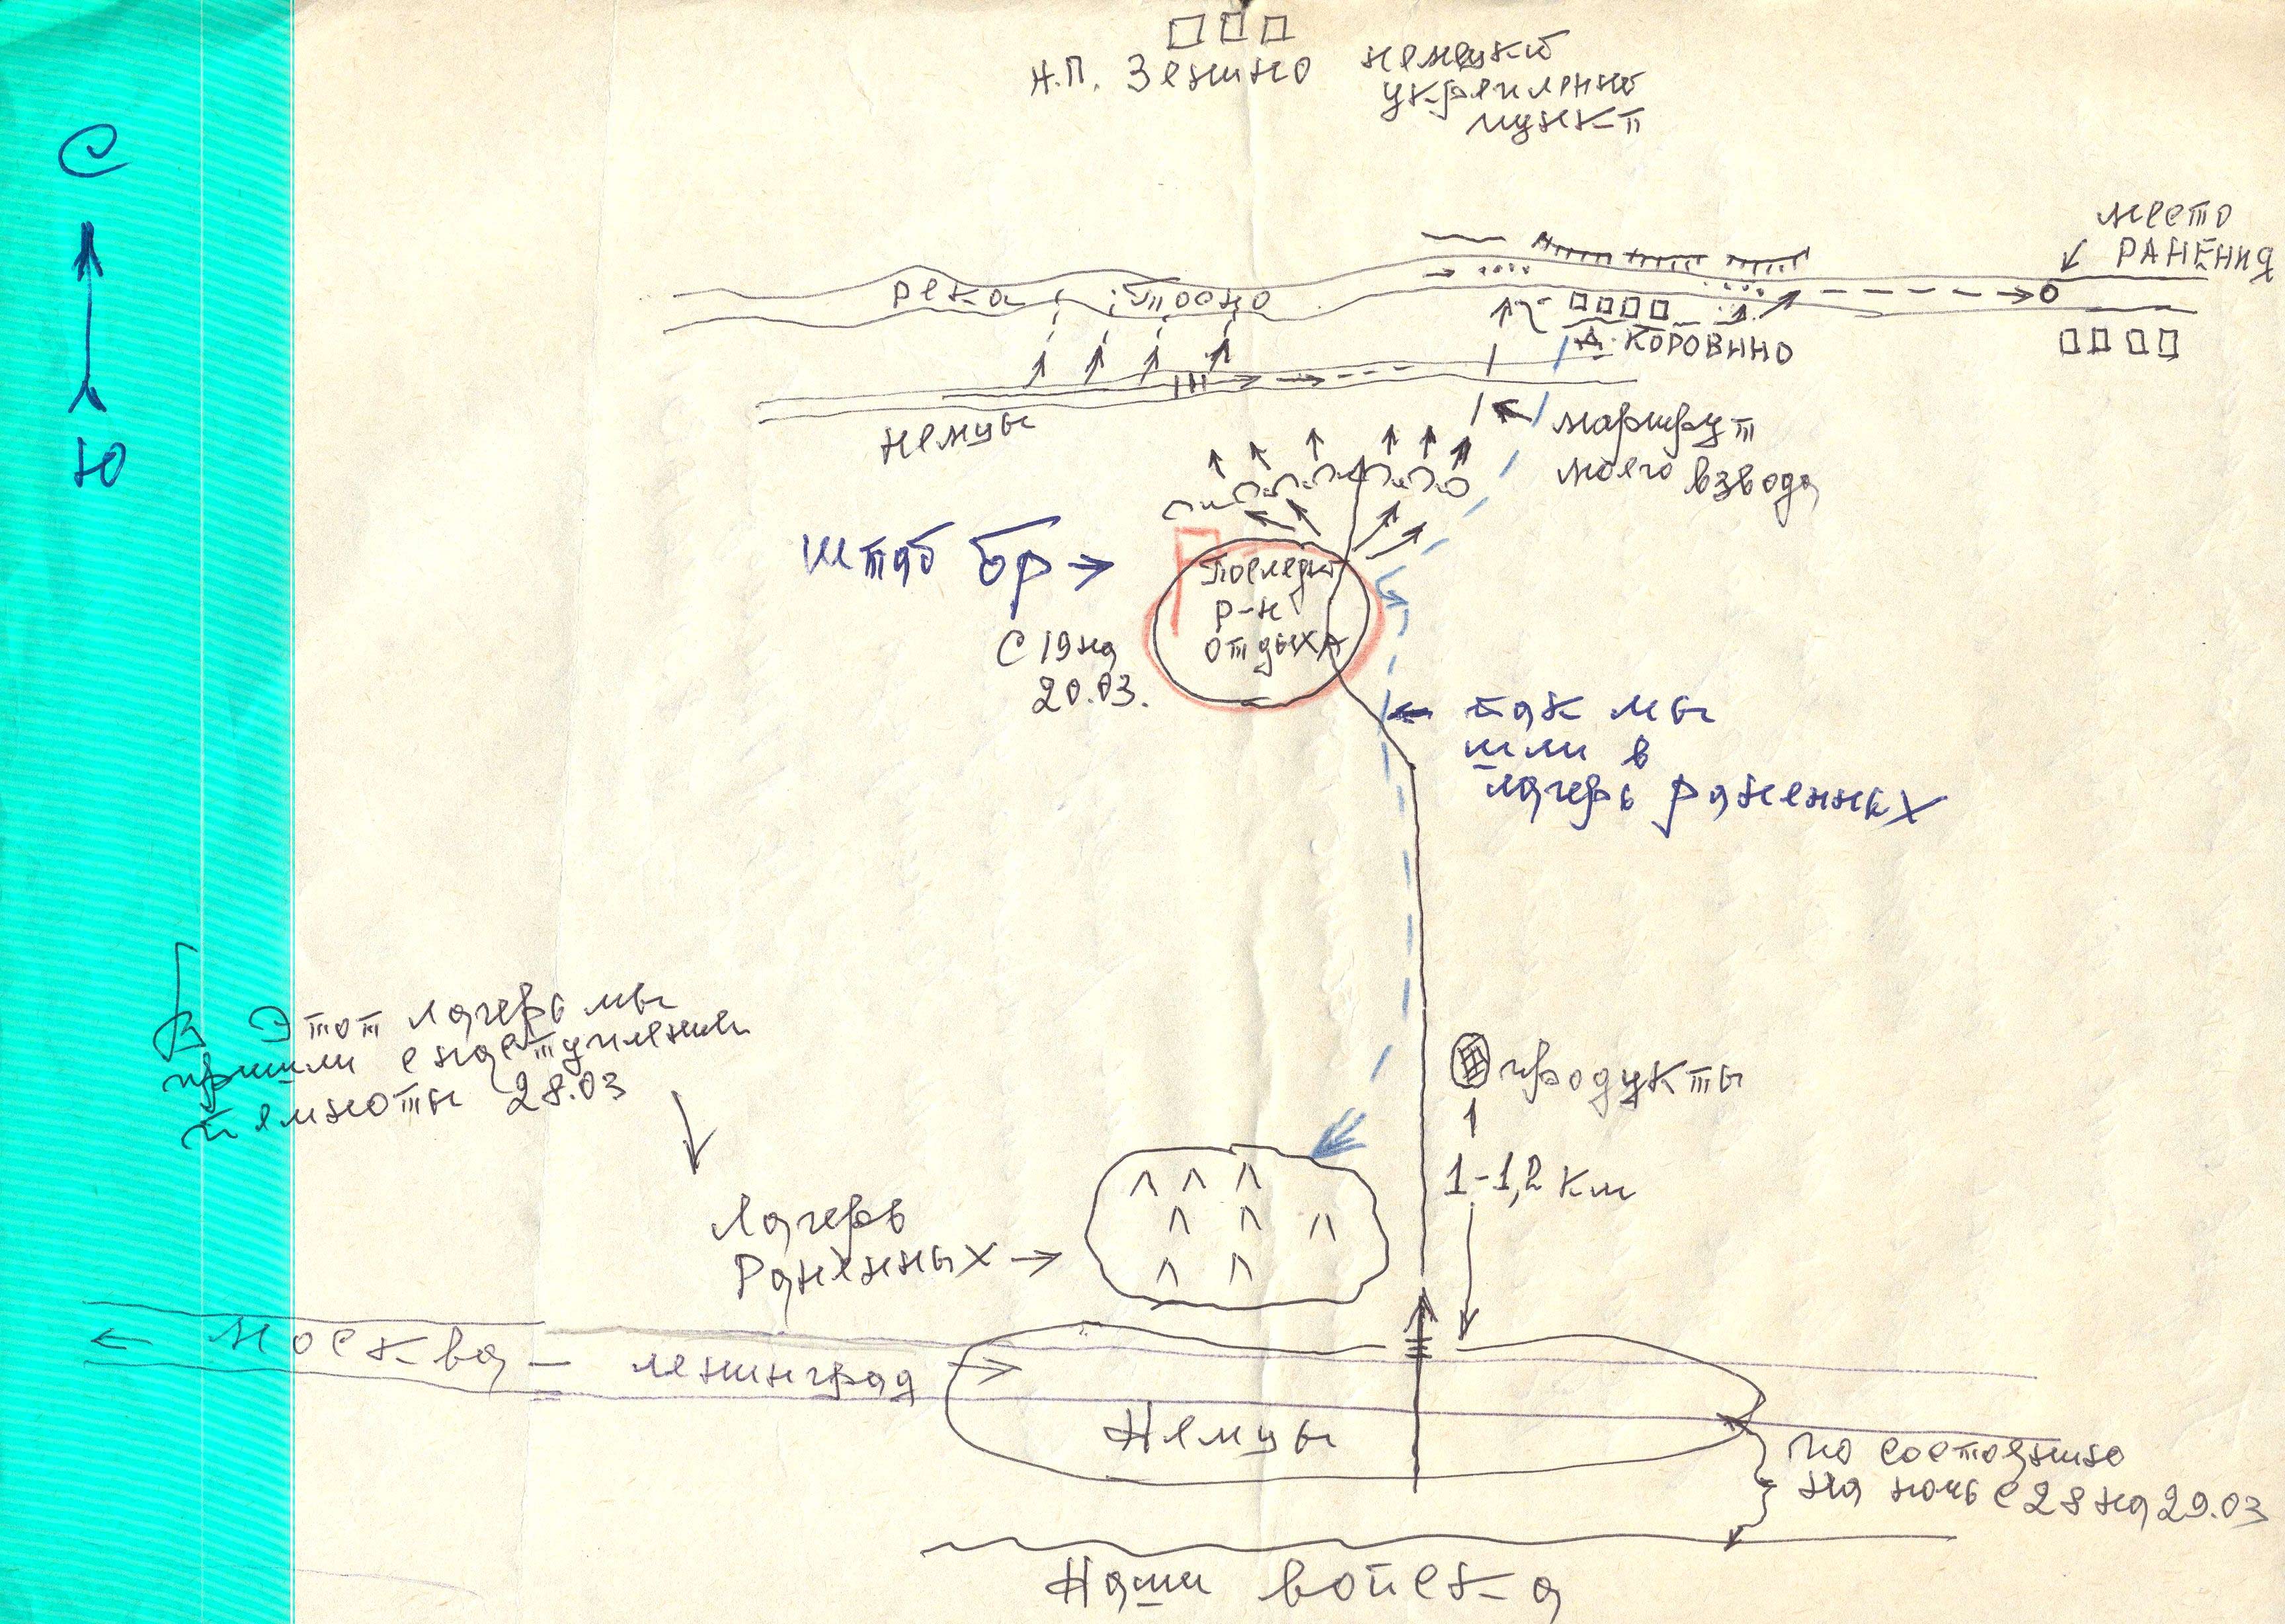 Н.П. Зенино
немецкий
укреплённый
пункт
С
Ю
место
РАНЕНИЯ
река Тосно
Д. КОРОВИНО
немцы
маршрут
моего взвода
Штаб бр
последний
р-н
отдыха
С 19 на
20.03.
так мы
шли в
лагерь раненных
В этот лагерь мы
пришли с наступлением
темноты 28.03
продукты
1-1,2 км
Лагерь
Раненных
Москва – Ленинград
Немцы
по состоянию
на ночь с 28 на 29.03
Наши войска